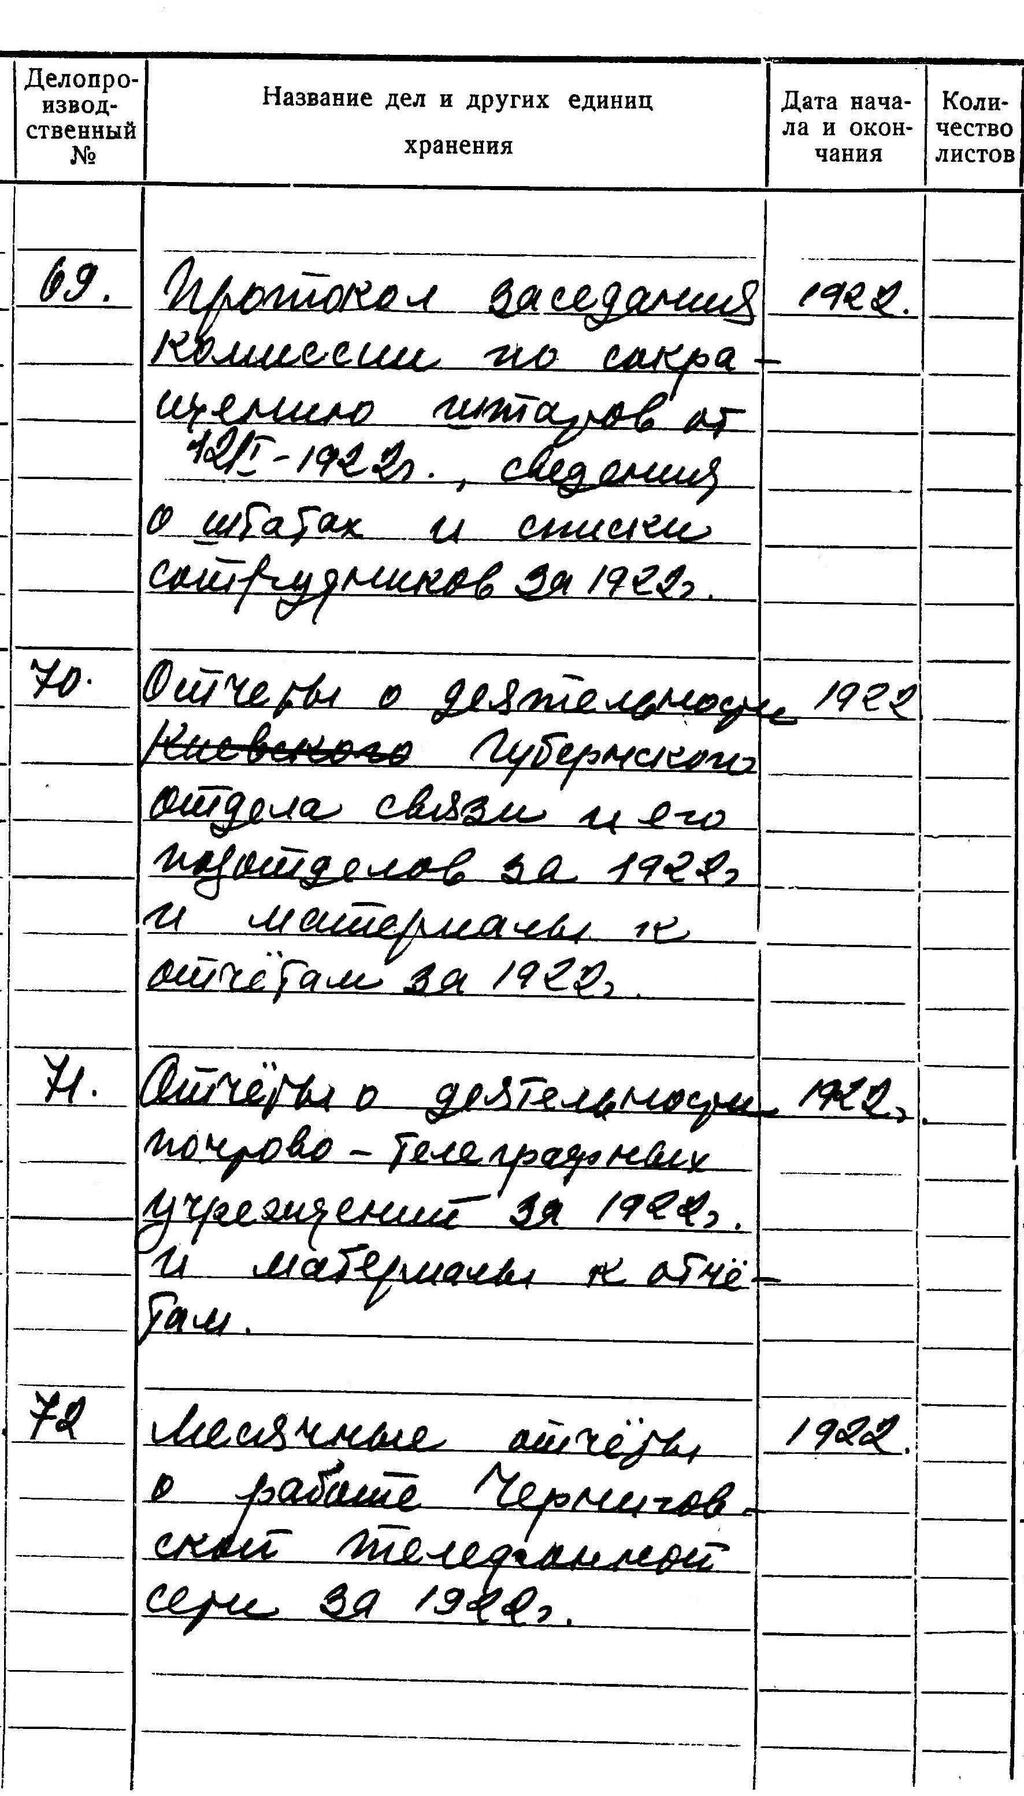 Делопро-
извод-
ственный
№
Название дел и других единиц
хранения
Дата нача-
ла и окон-
чания
Коли-
чество
листов
69. Протокол заседания 1922.
комиссии по сокра-
щению штатов от
12/I-1922г., сведения
о штатах и списки
сотрудников за 1922г.
70. Отчеты о деятельности 1922
Киевского Губернского
отдела связи и его
подотделов за 1922г
и материалы к
отчётам за 1922г.
71. Отчёты о деятельности 1922г.
почтово-телеграфных
учреждений за 1922г.
и материалы к отчё-
там.
72 Месячные отчёты 1922.
о работе Чернигов-
ской телефонной
сети за 1922г.